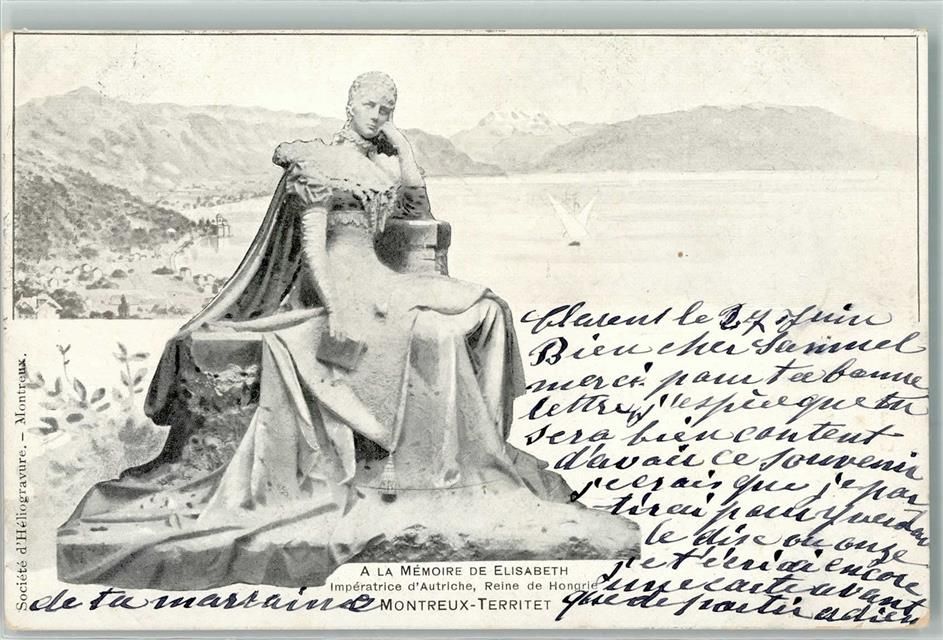 Clarens le 27 Juin
Bien cher Samuel
merci pour ta bonne
lettre, j'espère que tu
sera bien content
d'avoir ce souvenir
je crois que je par
tirai pour Yverdon
le dix ou onze
je t'écrirai encore
une carte avant
que de partir adieu
de ta marraine
A LA MÉMOIRE DE ELISABETH
Impératrice d'Autriche, Reine de Hongrie
MONTREUX-TERRITET
Société d'Héliogravure. – Montreux.